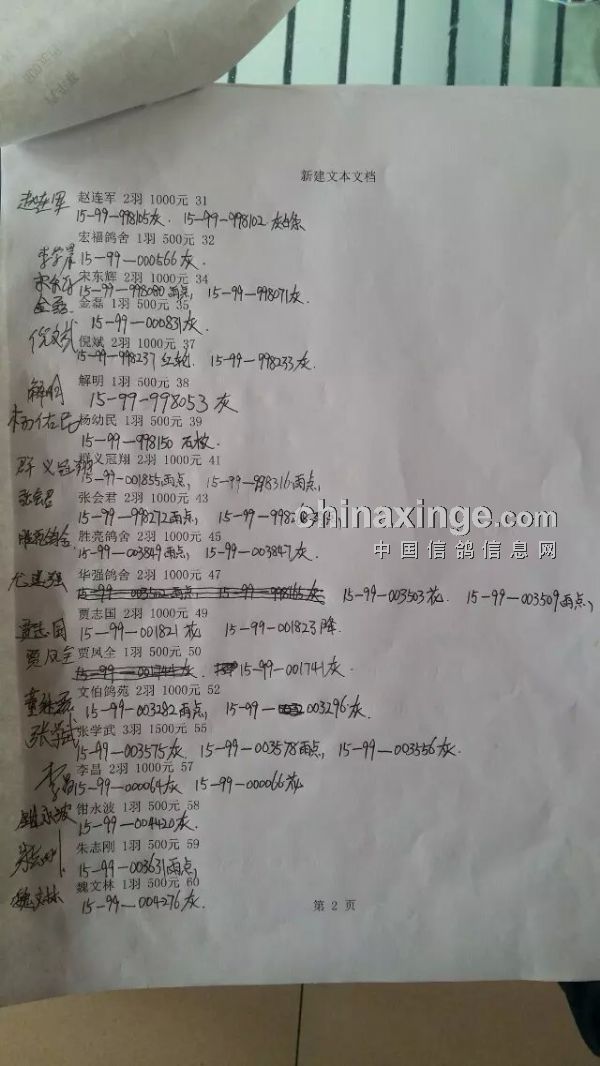 新建文本文档
赵连军 赵连军 2羽 1000元 31
15-99-998105灰. 15-99-998102.灰条
宏福鸽舍 1羽 500元 32
15-99-000566灰.
宋东辉 2羽 1000元 34
15-99-998080雨点, 15-99-998071灰.
金磊 金磊 1羽 500元 35
15-99-000831灰.
倪斌 2羽 1000元 37
15-99-998237 红轮. 15-99-998233灰.
解明 解明 1羽 500元 38
15-99-998053灰
杨幼民 1羽 500元 39
15-99-998150 石板.
群义冠翔 群义冠翔 2羽 1000元 41
15-99-001855雨点, 15-99-998316雨点,
张会君 张会君 2羽 1000元 43
15-99-998272雨点,
chinaxinge.com
胜亮鸽舍 胜亮鸽舍 2羽 1000元 45
15-99-003849雨点, 15-99-003847灰.
中国信鸽信息网
尤建强 华强鸽舍 2羽 1000元 47
15-99-003503花. 15-99-003509雨点,
贾志国 贾志国 2羽 1000元 49
15-99-001821 花 15-99-001823降.
贾凤全 贾凤全 1羽 500元 50
15-99-001741灰.
文伯鸽苑 2羽 1000元 52
15-99-003282雨点, 15-99-003296灰.
张学武 张学武 3羽 1500元 55
15-99-003575灰. 15-99-003578雨点, 15-99-003556灰.
李昌 李昌 2羽 1000元 57
15-99-000064灰 15-99-000066花
钳永波 1羽 500元 58
15-99-004420灰.
朱志刚 朱志刚 1羽 500元 59
15-99-003631雨点,
魏文林 魏文林 1羽 500元 60
15-99-004276灰.
第 2 页